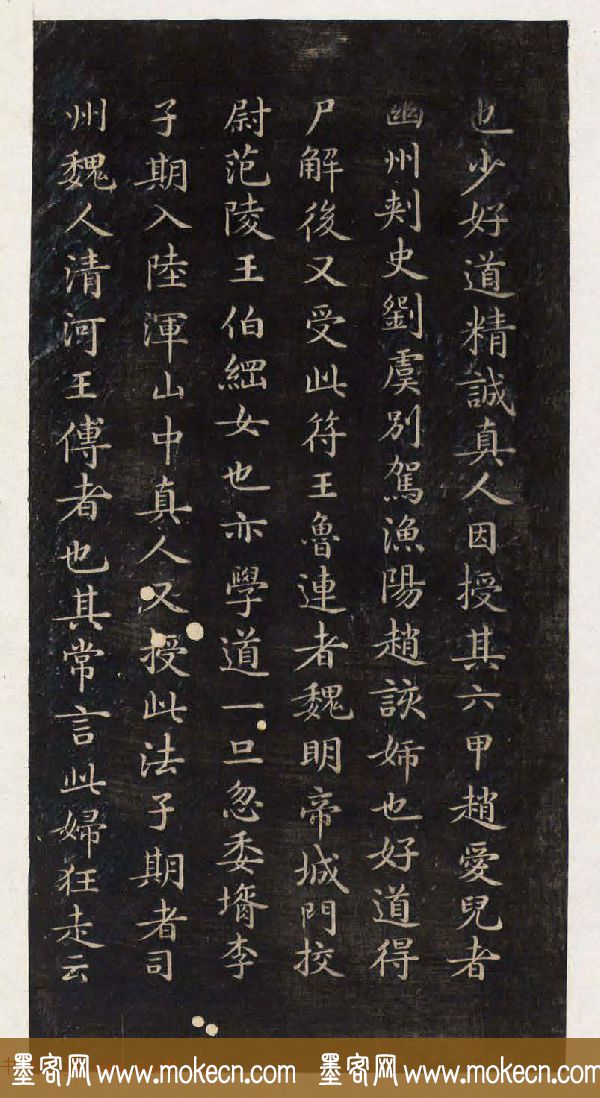 也少好道精誠真人因授其六甲趙愛兒者
幽州刾史劉虞別駕漁陽趙該姊也好道得
尸解後又受此符王魯連者魏明帝城門挍
尉范陵王伯綱女也亦學道一旦忽委壻李
子期入陸渾山中真人又授此法子期者司
州魏人清河王傅者也其常言此婦狂走云
墨客网 www.mokecn.com 墨客网 www.mokecn.com